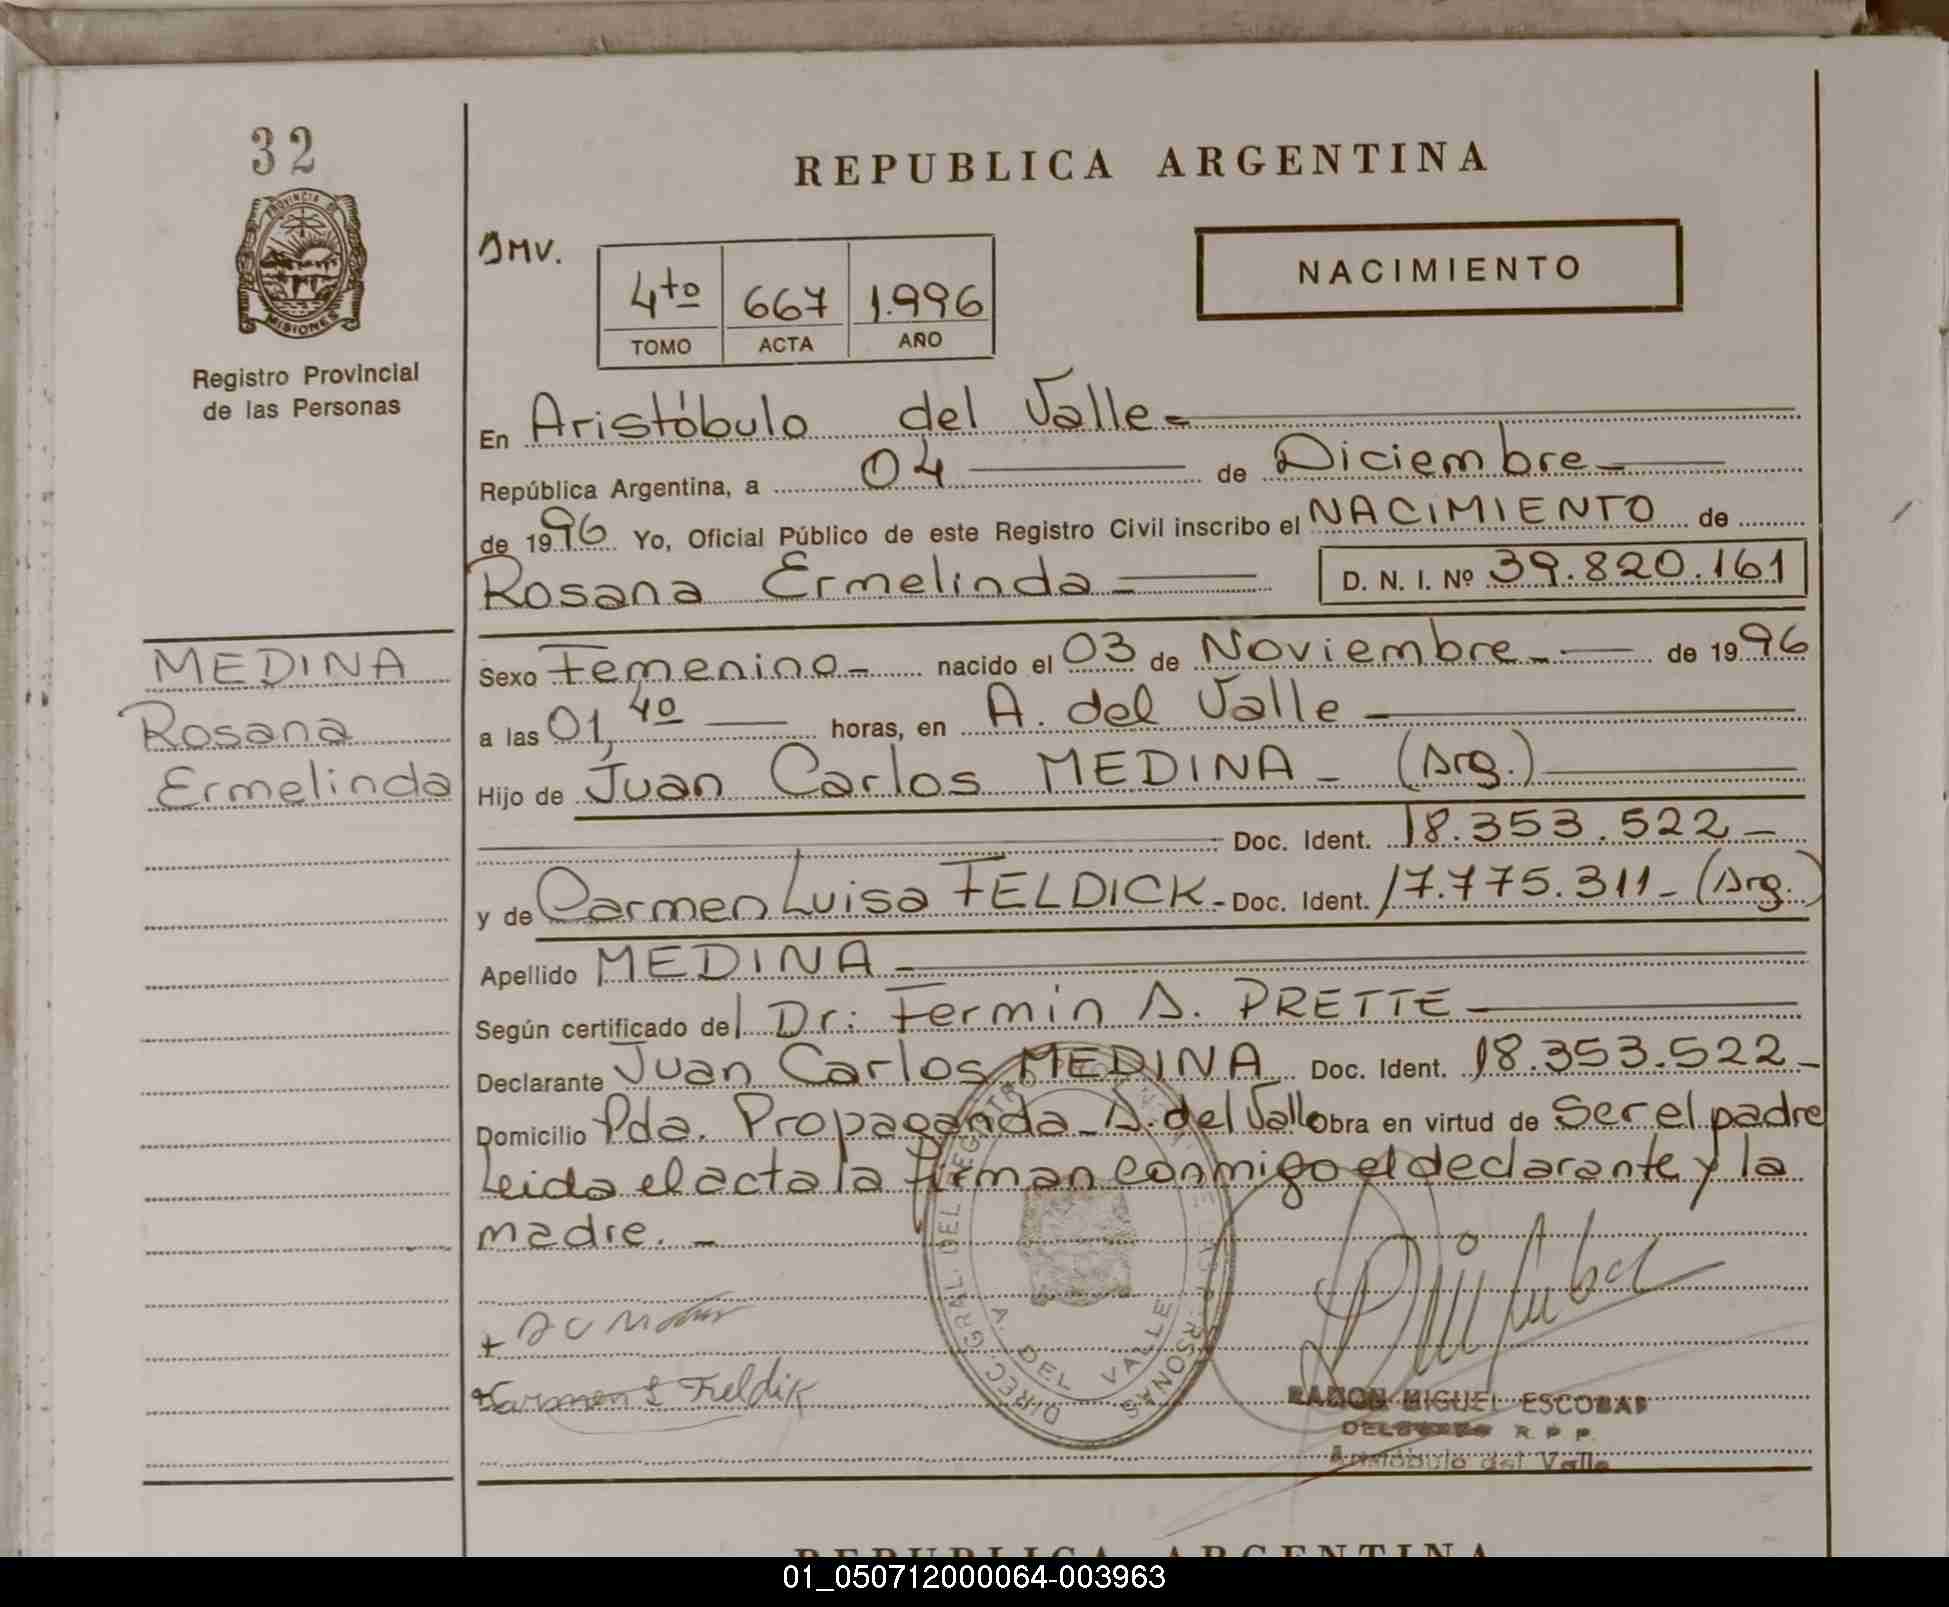 32
REPUBLICA ARGENTINA
PROVINCIA DE
MISIONES
Registro Provincial
de las Personas
DMV.
4to 667 1.996
TOMO ACTA AÑO
NACIMIENTO
En Aristóbulo del Valle-
República Argentina, a 04 de Diciembre-
de 1996 Yo, Oficial Público de este Registro Civil inscribo el NACIMIENTO de
Rosana Ermelinda- D. N. I. Nº 39.820.161
MEDINA
Rosana
Ermelinda
Sexo Femenino- nacido el 03 de Noviembre- de 1996
a las 01,40 horas, en A. del Valle-
Hijo de Juan Carlos MEDINA- (Arg.)
Doc. Ident. 18.353.522-
y de Carmen Luisa FELDICK- Doc. Ident. 17.775.311- (Arg.)
Apellido MEDINA-
Según certificado del Dr: Fermin A. PRETTE-
Declarante Juan Carlos MEDINA Doc. Ident. 18.353.522-
Domicilio Pda. Propaganda-A. del Valle Obra en virtud de Ser el padre
Leida el acta la firman conmigo el declarante y la
madre.-
Carmen L Fieldik
DIREC. GRAL. DEL REGISTRO PERSONAS
A. DEL VALLE
MIGUEL ESCOBAR
R. P. P.
Aristóbulo del Valle
REPUBLICA ARGENTINA
01_050712000064-003963